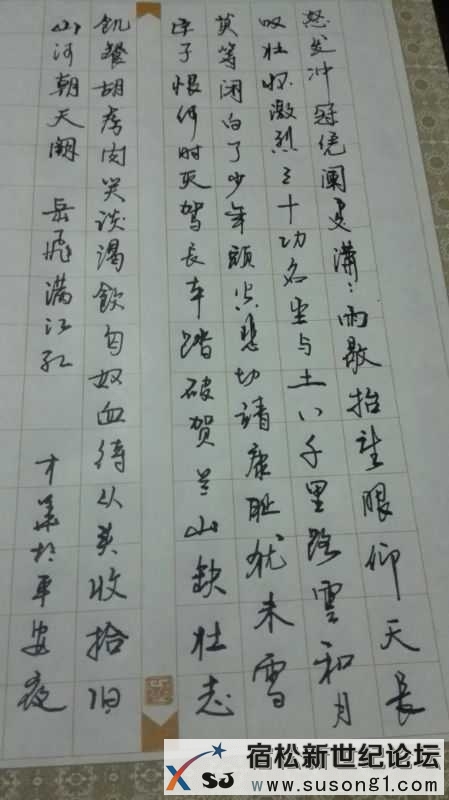 怒发冲冠凭阑处潇潇雨歇抬望眼仰天长
叹壮怀激烈三十功名尘与土八千里路雲和月
莫等闲白了少年頭空悲切靖康耻犹未雪
臣子恨何时灭驾长车踏破贺兰山缺壮志
飢餐胡虏肉笑谈渴飲匈奴血待从头收拾旧
山河朝天阙 岳飛满江红 才華於平安夜
宿松新世纪论坛
www.susong1.com
XSJ